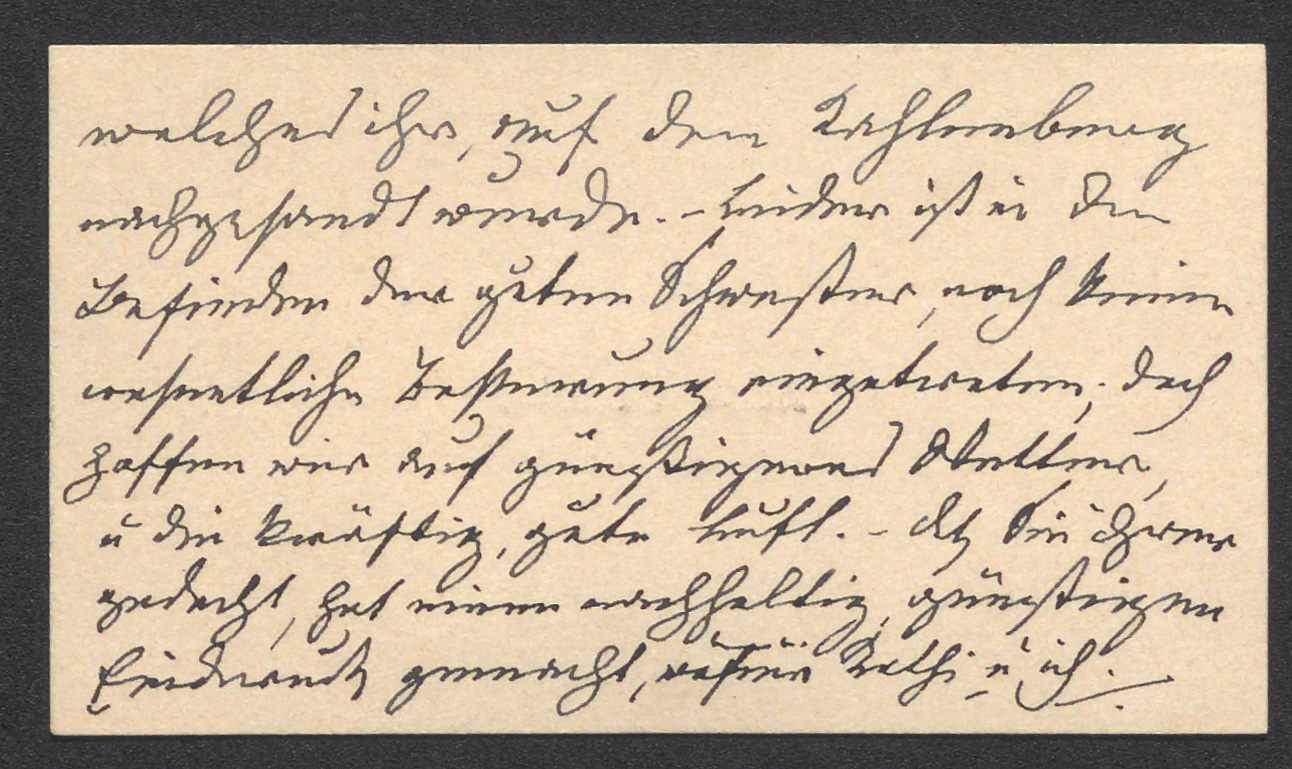 welches ihr, auf dem Kahlenberg
nachgesandt wurde. - Leider ist in dem
Befinden der guten Schwester, noch keine
wesentliche Besserung eingetreten, doch
hoffen wir auf günstigeres Wetter,
u die kräftig, gute Luft. - Das Sie ihrer
gedacht, hat einen nachhaltig, günstigen
Eindruck gemacht, wofür Kathi u ich.